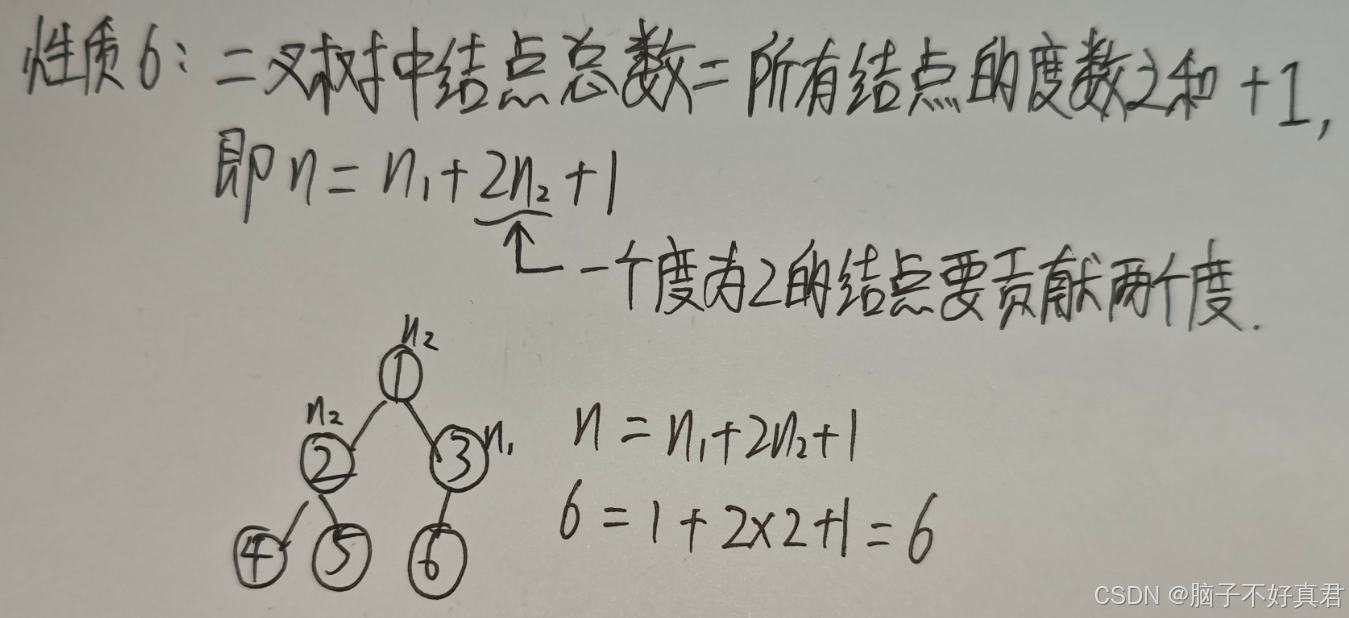 性质6：二叉树中结点总数=所有结点的度数之和+1，
即n=n₁+2n₂+1
一个度为2的结点要贡献两个度.
n₂
1
n₂
2
3
n₁
n=n₁+2n₂+1
4
5
6
6=1+2×2+1=6
CSDN @脑子不好真君